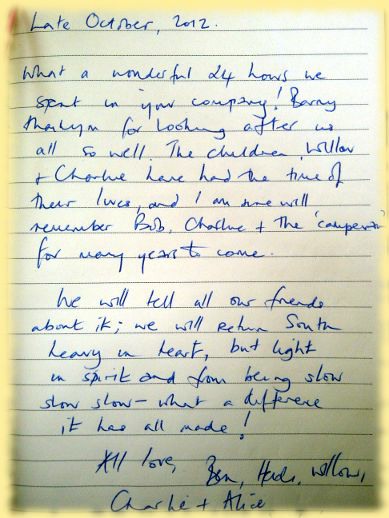 Late October, 2012.
What a wonderful 24 hours we
spent in your company! Barny
thankyou for looking after us
all so well. The children, Willow
+ Charlie have had the time of
their lives, and I am sure will
remember Bob, Charlie + The 'campervan'
for many years to come.
We will tell all our friends
about it; we will return South
heavy in heart, but light
in spirit and from being slow
slow slow - what a difference
it has all made!
All love,
Ben, Willow,
Charlie + Alice